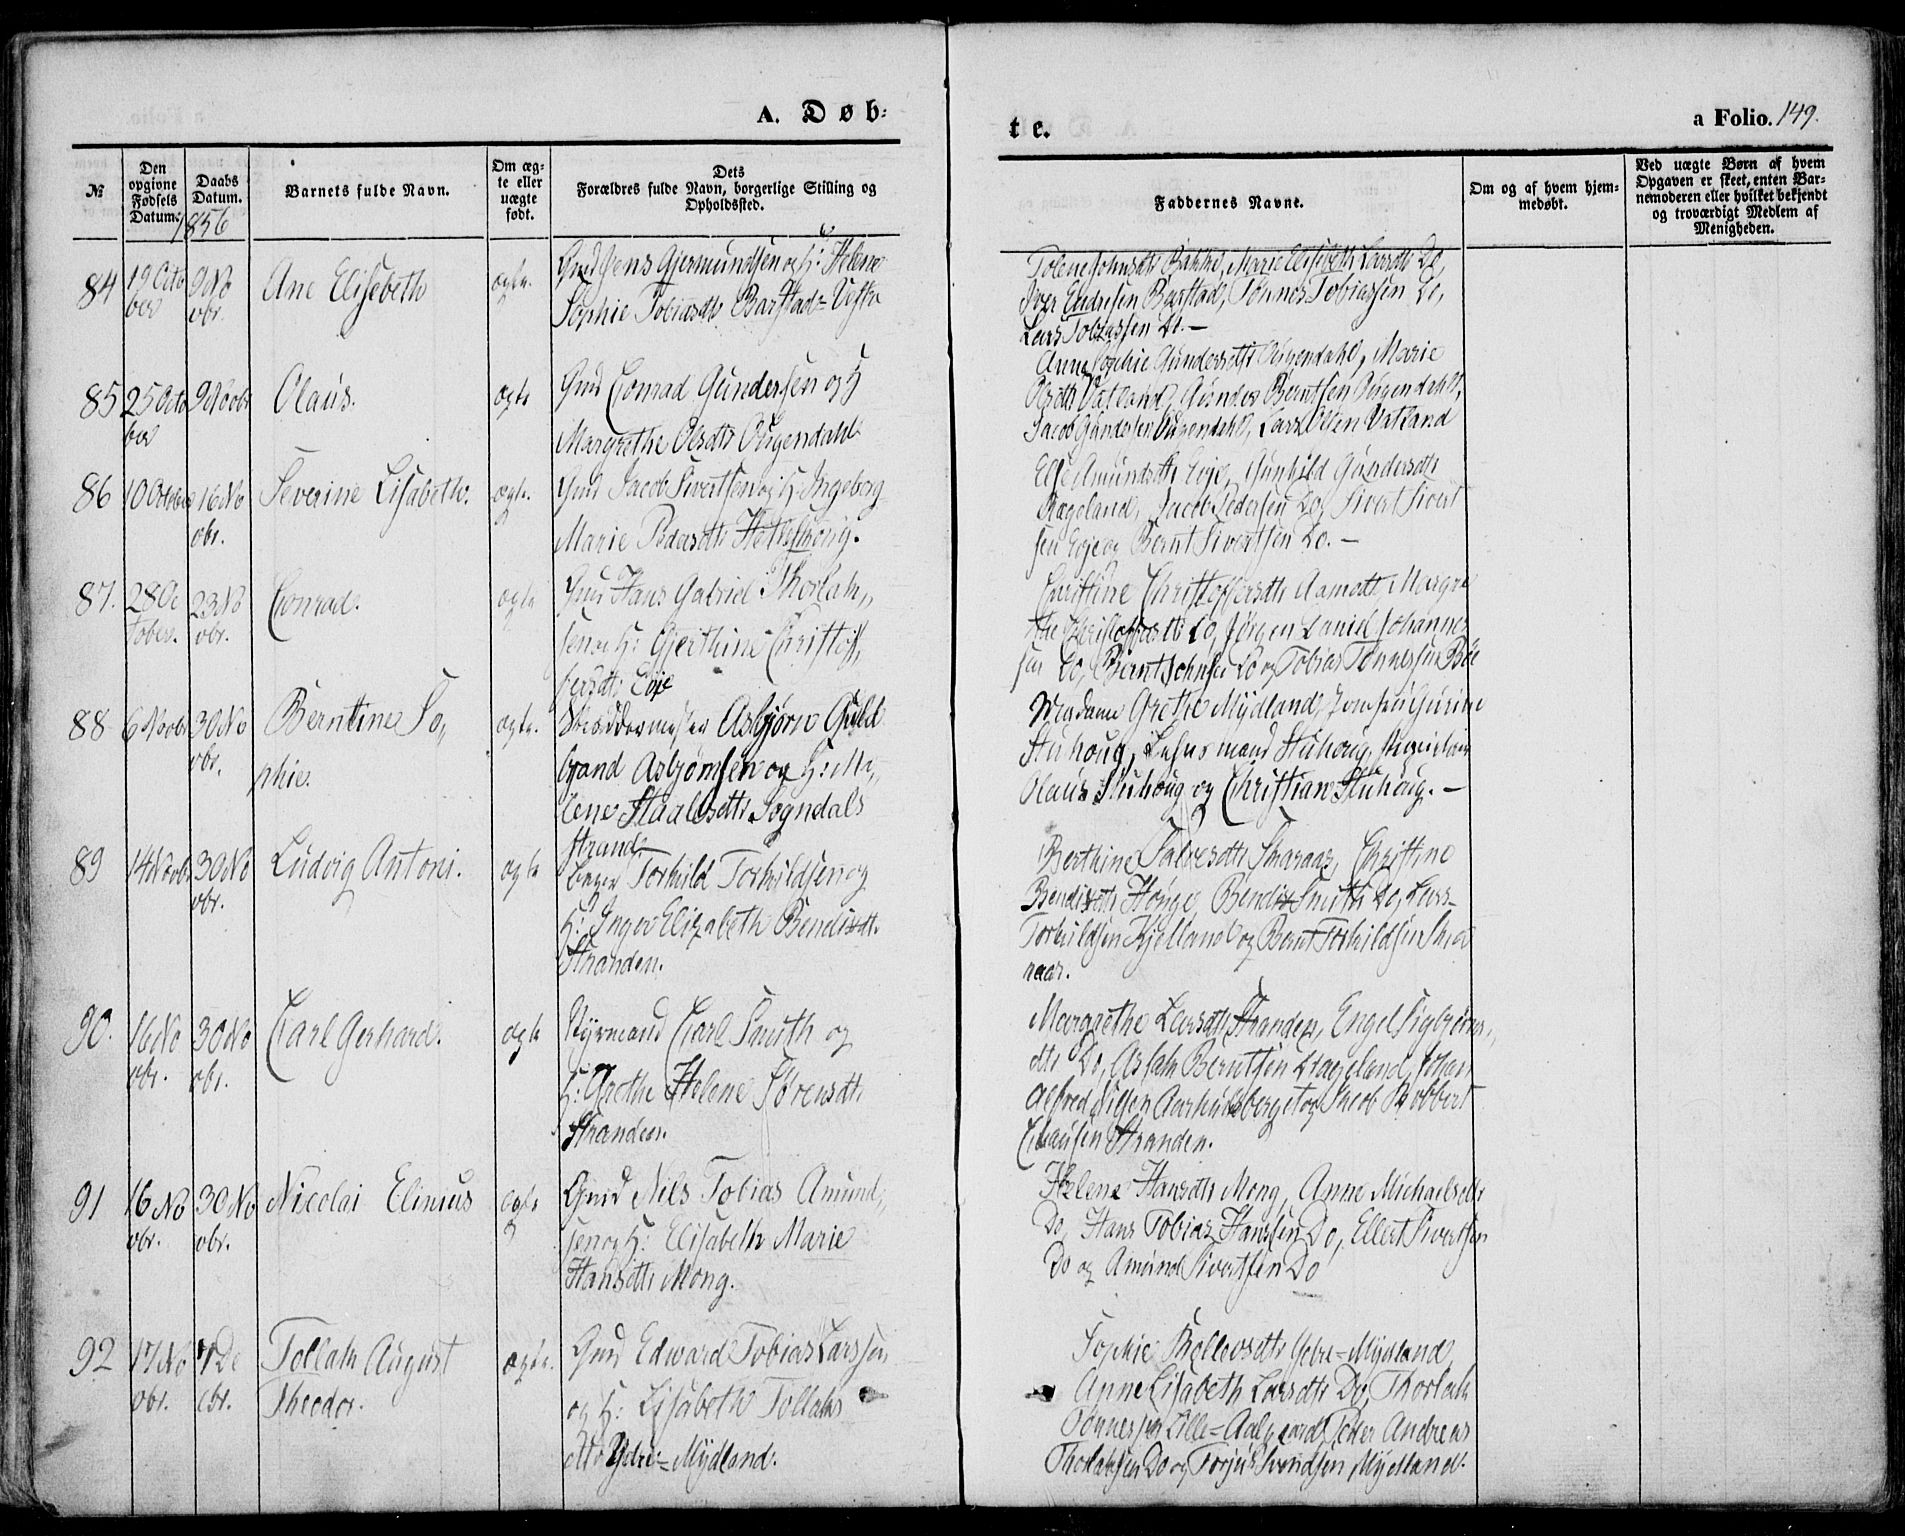 A. Døb-
te.
a Folio. 149.
№
Den opgivne Fødsels Datum.
Daabs Datum.
1856
Barnets fulde Navn.
Om æg-
te eller
uægte
født.
Dets
Forældres fulde Navn, borgerlige Stilling og
Opholdssted.
Faddernes Navne.
Om og af hvem hjem-
medøbt.
Ved uægte Børn af hvem
Opgaven er skeet, enten Bar-
nemoderen eller hvilket bekjendt
og troværdigt Medlem af
Menigheden.
84
19 Octo
ber
9 No
vbr.
Ane Elisebeth
ægte.
Gmd Jens Gjermundsen og H: Helene
Sophie Tobiasdtr Barstad-Vestre
Tolene Johnsdtr Bakke, Marie Elisebeth Larsdtr Do,
Iver Endresen Barstad, Tønnes Tobiassen Do,
Lars Tobiassen Do. —
85
25 Octo
ber
9 Novbr
Olaus.
ægte
Gmd Conrad Gundersen og H
Margrethe Olsdtr Øigendahl
Anne Sophie Gundersdtr Øigendahl, Marie
Olsdtr Vatland, Gunder Berntsen Øigendahl,
Jacob Gundersen Øigendahl, Lars Olsen Vatland
86
10 October
16 No
vbr.
Severine Lisabeth.
ægte.
Gmd Jacob Sivertsen og H: Ingeborg
Marie Pedersdtr
Else Amundsdtr Eeje, Gunhild Gundersdtr
Rægeland, Jacob Pedersen Do, Sivert Sivert
sen Eeje og Bernt Sivertsen Do. —
87.
28 Oc
tober.
23 No
vbr.
Conrad.
ægte
Gmd Hans Gabriel Thorlak,,
sen og H: Gjerthine Christof,,
fersdtr Eeje
Christine Christoffersdtr Aamodt, Margre
the Christoffersdtr Do, Jørgen Daniel Johanne
sen Do, Bernt Johnsen Do og Tobias Tønnessen Bøe
88
6 Novbr
30 No
vbr.
Berntine So,,
phie.
ægte.
Skreddermester Asbjørn Guld
brand Asbjørnsen og H: Ma,,
lene Staalesdtr Sogndals
strand
Madame Grethe Mydland, Jomfru Gurine
Stuhoug, Lehnsmand Stuhoug,
Olaus Stuhoug og Christian Stuhoug. —
89
14 Novbr
30 No
vbr.
Ludvig Antoni.
ægte
Torkild Torkildsen og
H: Inger Elizabeth Bendixdtr.
Stranden.
Berthine Salvesdtr Snaraas, Christine
Bendixdtr Houge, Bendix Smith Do, Lars
Torkildsen Kjelland og Bernt Torkildsen Sna
raas.
90.
16 No
vbr.
30 No
vbr.
Carl Gerhard.
ægte
Styrmand Carl Smith og
H: Grethe Helene Sørensdtr
Stranden.
Margrethe Larsdtr Stranden, Engel Sigbjørns,,
dtr Do, Aslak Berntsen Drageland, Johan
Alfred Nilsen Aarhuusberget og Jacob Robbert
Clausen Stranden.
91
16 No
vbr.
30 No
vbr.
Nicolai Elinius
ægte
Gmd Nils Tobias Amund,,
sen og H: Elisabeth Marie
Hansdtr Mong.
Helene Hansdtr Mong, Anne Michaelsdtr
Do, Hans Tobias Hansen Do, Ellert Sivertsen
Do og Amund Sivertsen Do
92
17 No
vbr.
7 De
cbr.
Tollak August
Theodor.
ægte.
Gmd Edward Tobias Larssen
og H: Lisabeth Tollaks
dtr Ydre-Mydland.
Sophie Thollevsdtr Ydre-Mydland,
Anne Lisabeth Larsdtr Do, Thorlak
Tønnessen Lille-Aalgaard, Peder Andreas
Thorlaksen Do og Torjus Svendsen Mydland.